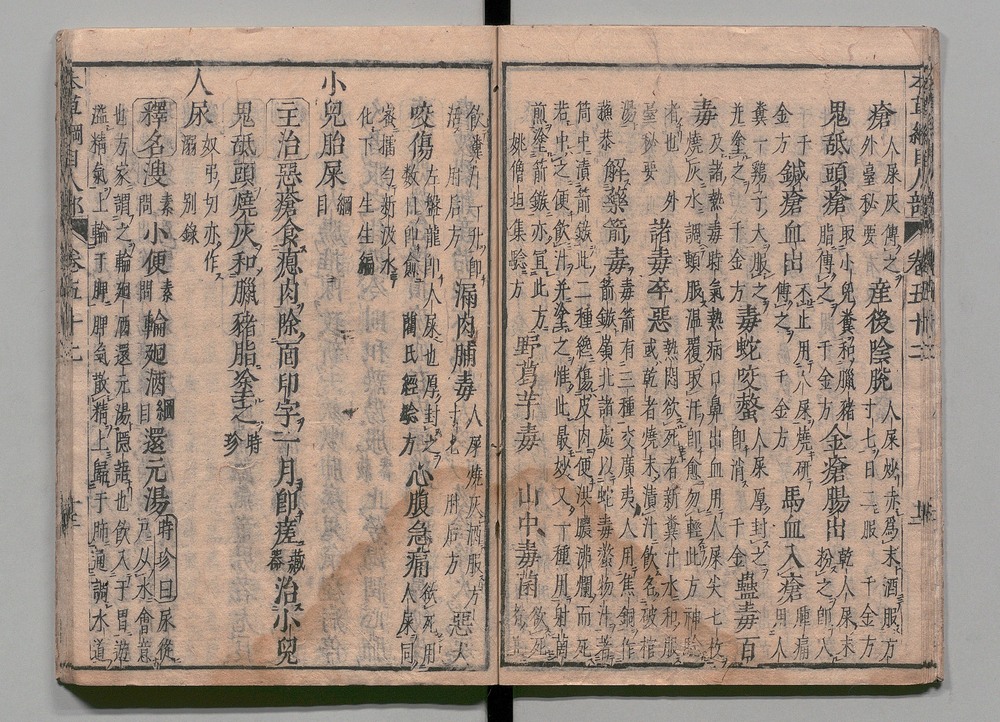 本草綱目人部 卷五十二
瘡 人屎灰傅之 外臺秘要 產後陰脫 人屎炒赤爲末酒服方寸七日二服 千金方
鬼舐頭瘡 取小兒糞和臘豬脂傅之 千金方 金瘡腸出 乾人屎末粉之即入
千金方 鍼瘡血出 不止用人屎燒研傅之 千金方 馬血入瘡 腫痛用人
糞一鷄子大服之并塗之 千金方 毒蛇咬螫 人屎厚封之即消 千金 蠱毒百
毒 及諸熱毒時氣熱病口鼻出血用人屎尖七枚燒灰水調頓服溫覆取汗即愈勿輕此方神驗
者也 外臺秘要 諸毒卒惡 熱悶欲死者新糞汁水和服或乾者燒末漬汁飲名破棺
湯 解藥箭毒 毒箭有三種交廣夷人用焦銅作箭鏃嶺北諸處以蛇毒螫物汁着
筒中漬箭鏃此二種纔傷皮肉便洪膿沸爛而死
若中之便飲汁并塗之惟此最妙又一種用射菌
煎塗箭鏃亦宜此方 姚僧坦集驗方 野葛芋毒 山中毒菌 欲死
飲糞汁一升即活 肘后方 漏肉脯毒 人屎燒灰酒服方寸七 肘后方 惡犬
咬傷 左盤龍即人屎也厚封之數日即愈 藺氏經驗方 心腹急痛 欲死用人屎同
擂勻新汲水化下 生生編
小兒胎屎 綱目
主治惡瘡食瘜肉除面印字一月即瘥 藏器 治小兒
鬼舐頭燒灰和臘豬脂塗之 時珍
人尿 奴弔切亦作溺 別錄
釋名溲 素問 小便 素問 輪廻酒 綱目 還元湯 時珍曰尿從尸從水會意
也方家謂之輪廻酒還元湯隱語也飲入于胃游
溢精氣上輸于脾脾氣散精上歸于肺通調水道
本草綱目人部 卷五十二